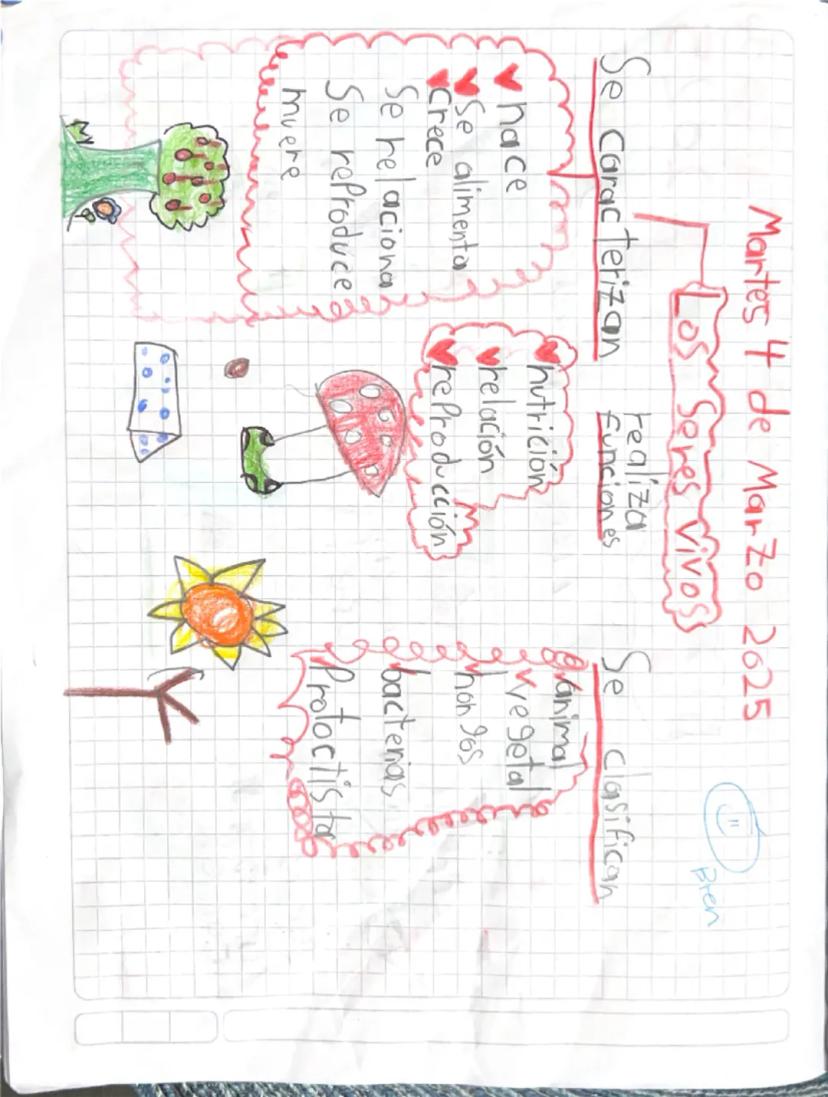 Martes 4 de Marzo 2025
Los Seres vivos
Se caracterizan
nace
Se alimenta
crece
Se relaciona
Se reproduce
muere
realiza
funciones
nutrición
relación
reproducción
Se clasifican
animal
vegetal
hongos
bacterias
Protoctista
Bien